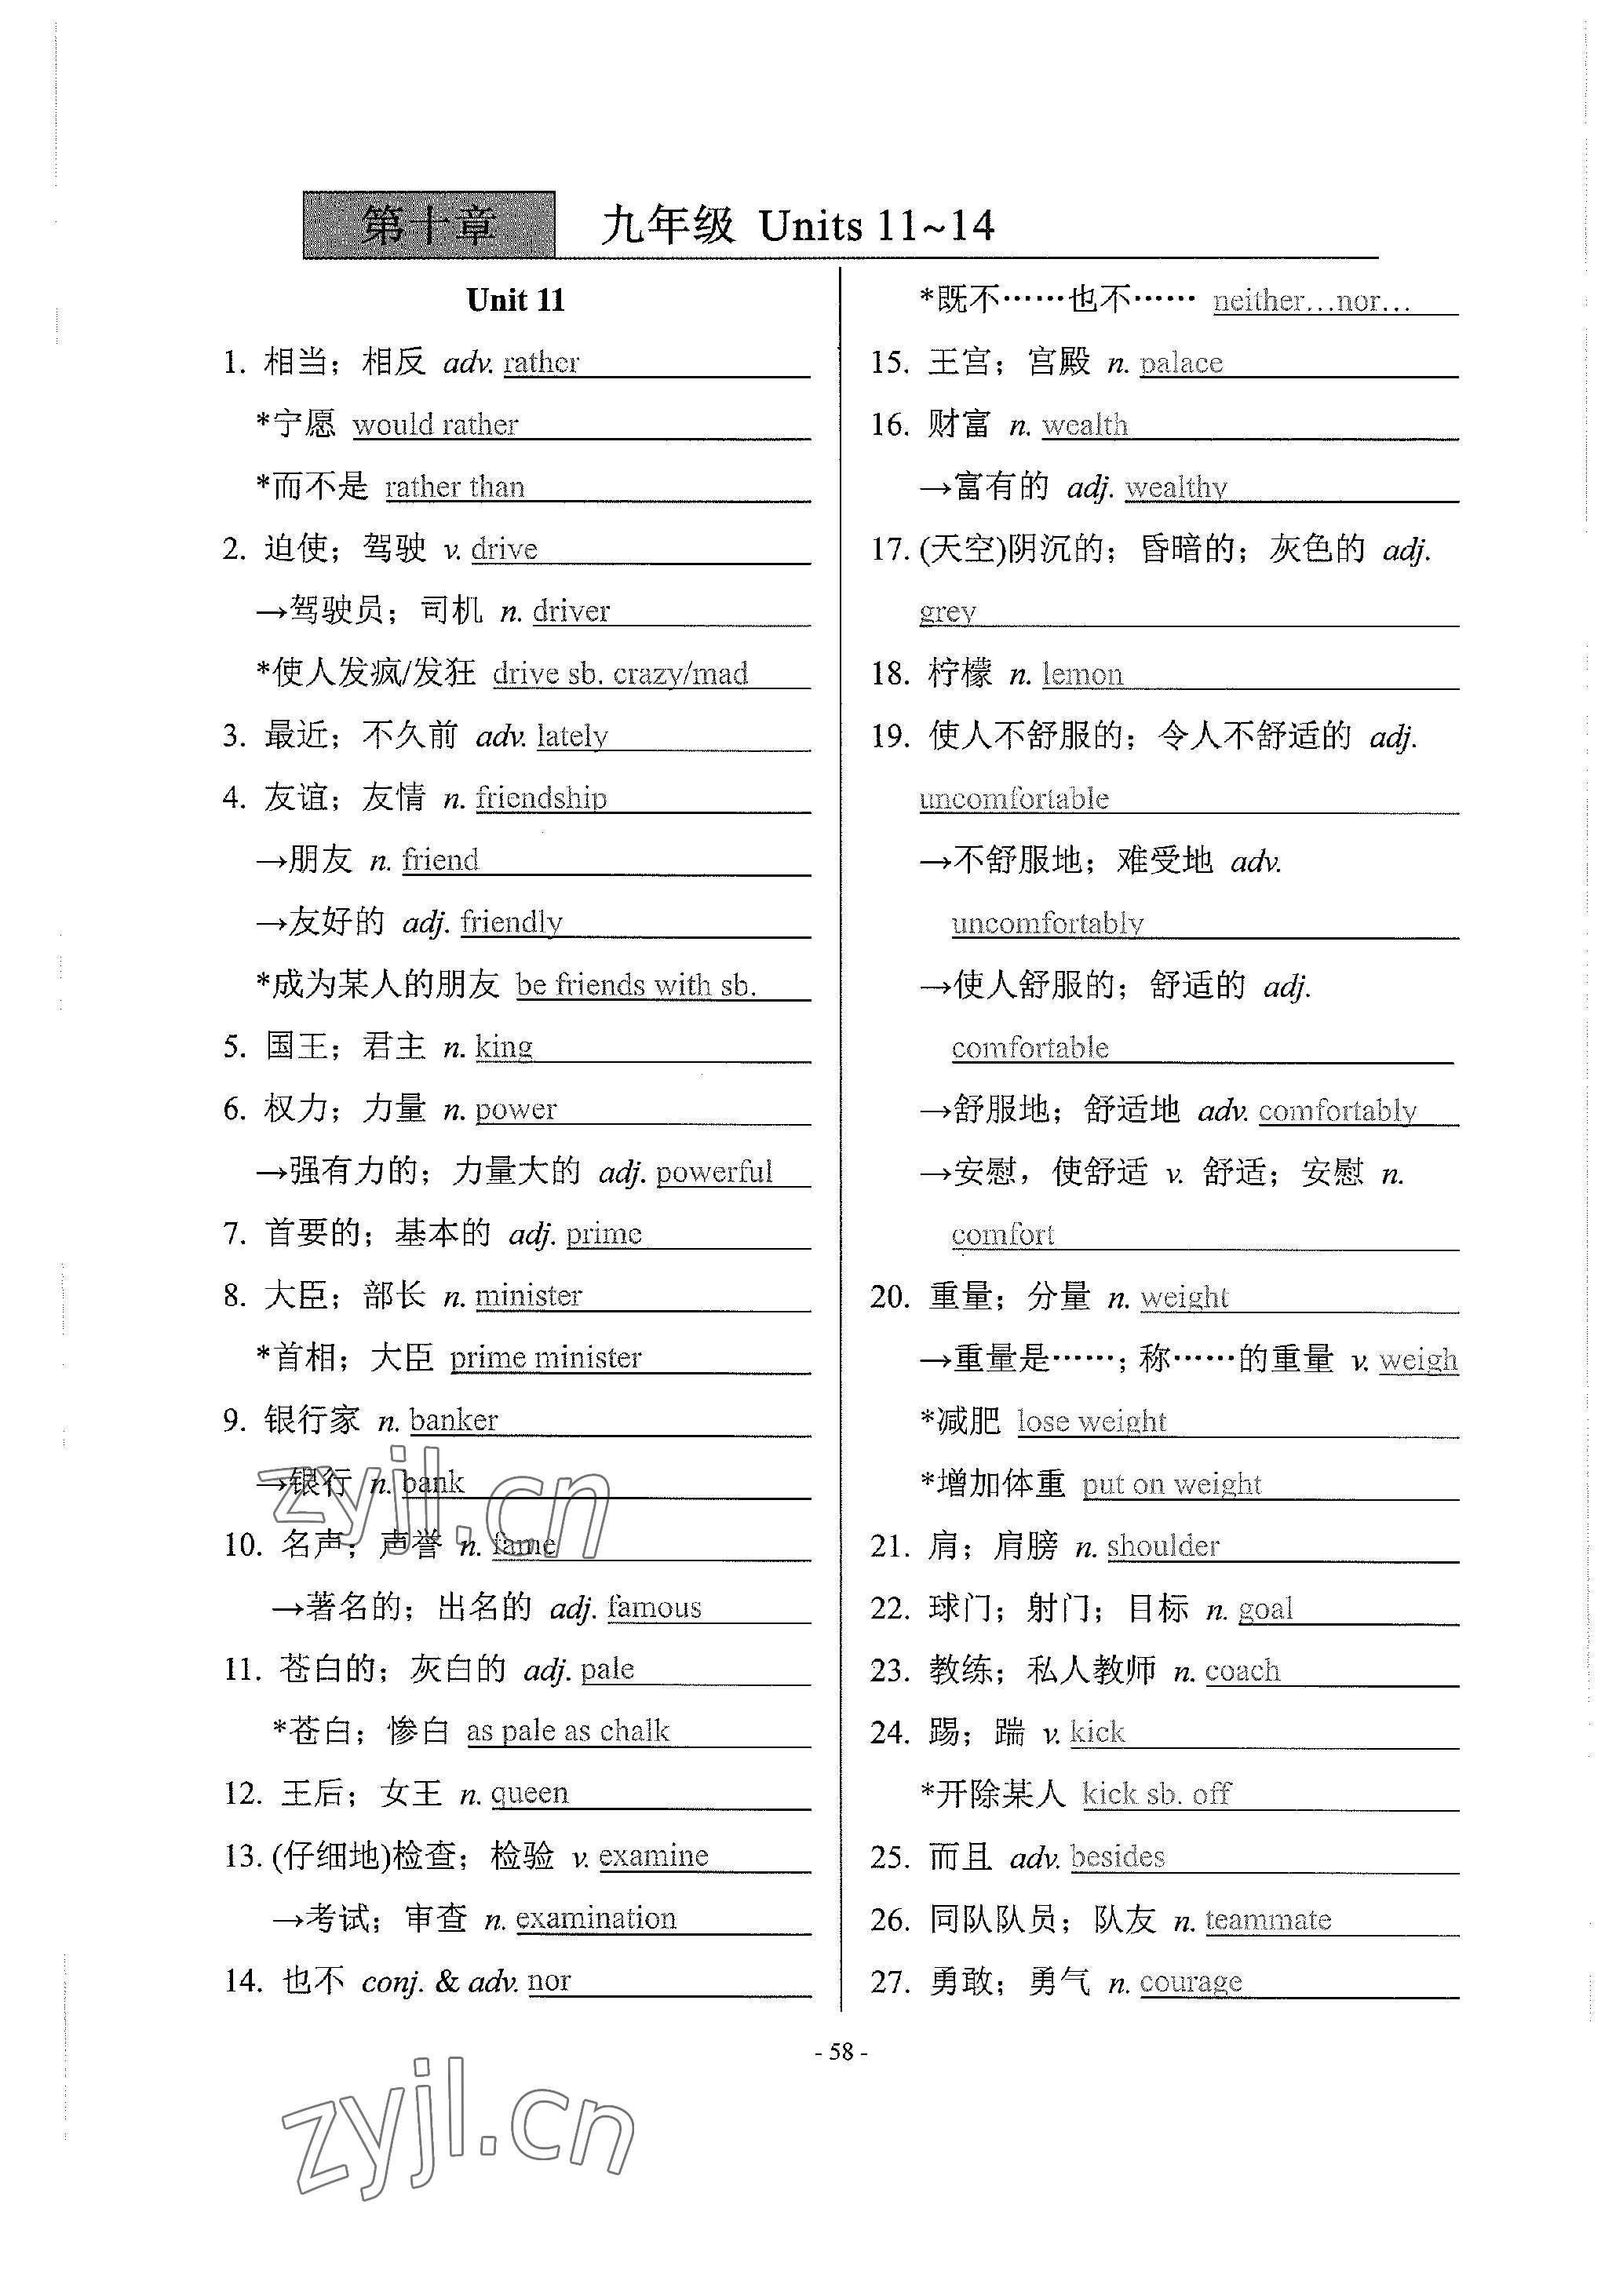 第十章 九年级 Units 11~14
Unit 11
1. 相当；相反 adv. rather
*宁愿 would rather
*而不是 rather than
2. 迫使；驾驶 v. drive
→驾驶员；司机 n. driver
*使人发疯/发狂 drive sb. crazy/mad
3. 最近；不久前 adv. lately
4. 友谊；友情 n. friendship
→朋友 n. friend
→友好的 adj. friendly
*成为某人的朋友 be friends with sb.
5. 国王；君主 n. king
6. 权力；力量 n. power
→强有力的；力量大的 adj. powerful
7. 首要的；基本的 adj. prime
8. 大臣；部长 n. minister
*首相；大臣 prime minister
9. 银行家 n. banker
→银行 n. bank
10. 名声；声誉 n. fame
→著名的；出名的 adj. famous
11. 苍白的；灰白的 adj. pale
*苍白；惨白 as pale as chalk
12. 王后；女王 n. queen
13. (仔细地)检查；检验 v. examine
→考试；审查 n. examination
14. 也不 conj. & adv. nor
*既不……也不…… neither…nor…
15. 王宫；宫殿 n. palace
16. 财富 n. wealth
→富有的 adj. wealthy
17. (天空)阴沉的；昏暗的；灰色的 adj.
grey
18. 柠檬 n. lemon
19. 使人不舒服的；令人不舒适的 adj.
uncomfortable
→不舒服地；难受地 adv.
uncomfortably
→使人舒服的；舒适的 adj.
comfortable
→舒服地；舒适地 adv. comfortably
→安慰，使舒适 v. 舒适；安慰 n.
comfort
20. 重量；分量 n. weight
→重量是……；称……的重量 v. weigh
*减肥 lose weight
*增加体重 put on weight
21. 肩；肩膀 n. shoulder
22. 球门；射门；目标 n. goal
23. 教练；私人教师 n. coach
24. 踢；踹 v. kick
*开除某人 kick sb. off
25. 而且 adv. besides
26. 同队队员；队友 n. teammate
27. 勇敢；勇气 n. courage
- 58 -
zyjl.cn
zyjl.cn